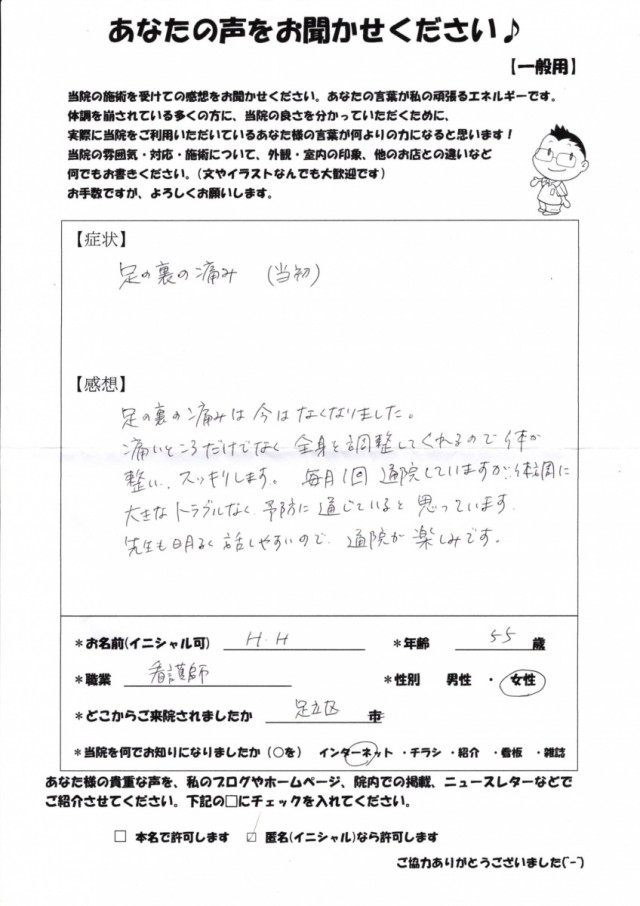 あなたの声をお聞かせください♪
【一般用】
当院の施術を受けての感想をお聞かせください。あなたの言葉が私の頑張るエネルギーです。
体調を崩されている多くの方に、当院の良さを分かっていただくために、
実際に当院をご利用いただいているあなた様の言葉が何よりの力になると思います！
当院の雰囲気・対応・施術について、外観・室内の印象、他のお店との違いなど
何でもお書きください。(文やイラストなんでも大歓迎です)
お手数ですが、よろしくお願いします。
【症状】
足の裏の痛み (当初)
【感想】
足の裏の痛みは今はなくなりました。
痛いところだけでなく全身を調整してくれるので体が
整い、スッキリします。毎月1回通院していますが、体調に
大きなトラブルなく、予防に通じていると思っています。
先生も明るく話しやすいので、通院が楽しみです。
*お名前(イニシャル可) H.H *年齢 55 歳
*職業 看護師 *性別 男性 ・ 女性
*どこからご来院されましたか 足立区 市
*当院を何でお知りになりましたか (○を) インターネット ・チラシ ・紹介 ・看板 ・雑誌
あなた様の貴重な声を、私のブログやホームページ、院内での掲載、ニュースレターなどで
ご紹介させてください。下記の□にチェックを入れてください。
□ 本名で許可します ☑ 匿名(イニシャル)なら許可します
ご協力ありがとうございました(^-^)